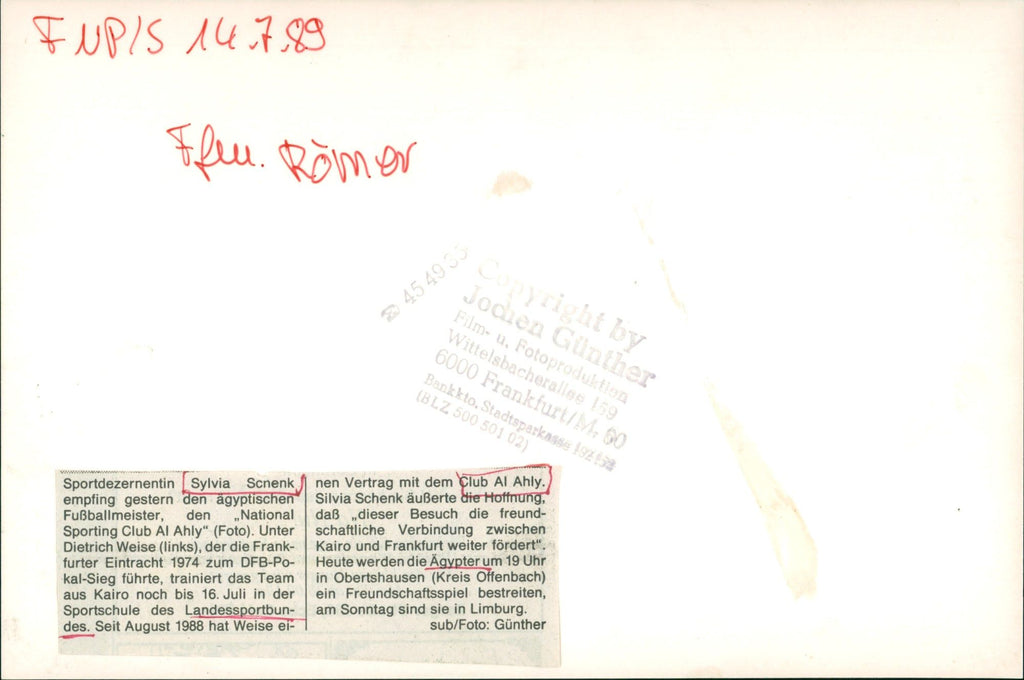 FNP/S 14.7.89
Ffm. Römer
☎ 45 49 35
Copyright by
Jochen Günther
Film- u. Fotoproduktion
Wittelsbacherallee 159
6000 Frankfurt/M. 60
Bankkto. Stadtsparkasse
(BLZ 500 501 02)
Sportdezernentin Sylvia Scnenk
empfing gestern den ägyptischen
Fußballmeister, den „National
Sporting Club Al Ahly“ (Foto). Unter
Dietrich Weise (links), der die Frank-
furter Eintracht 1974 zum DFB-Po-
kal-Sieg führte, trainiert das Team
aus Kairo noch bis 16. Juli in der
Sportschule des Landessportbun-
des. Seit August 1988 hat Weise ei-
nen Vertrag mit dem Club Al Ahly.
Silvia Schenk äußerte die Hoffnung,
daß „dieser Besuch die freund-
schaftliche Verbindung zwischen
Kairo und Frankfurt weiter fördert“.
Heute werden die Ägypter um 19 Uhr
in Obertshausen (Kreis Offenbach)
ein Freundschaftsspiel bestreiten,
am Sonntag sind sie in Limburg.
sub/Foto: Günther